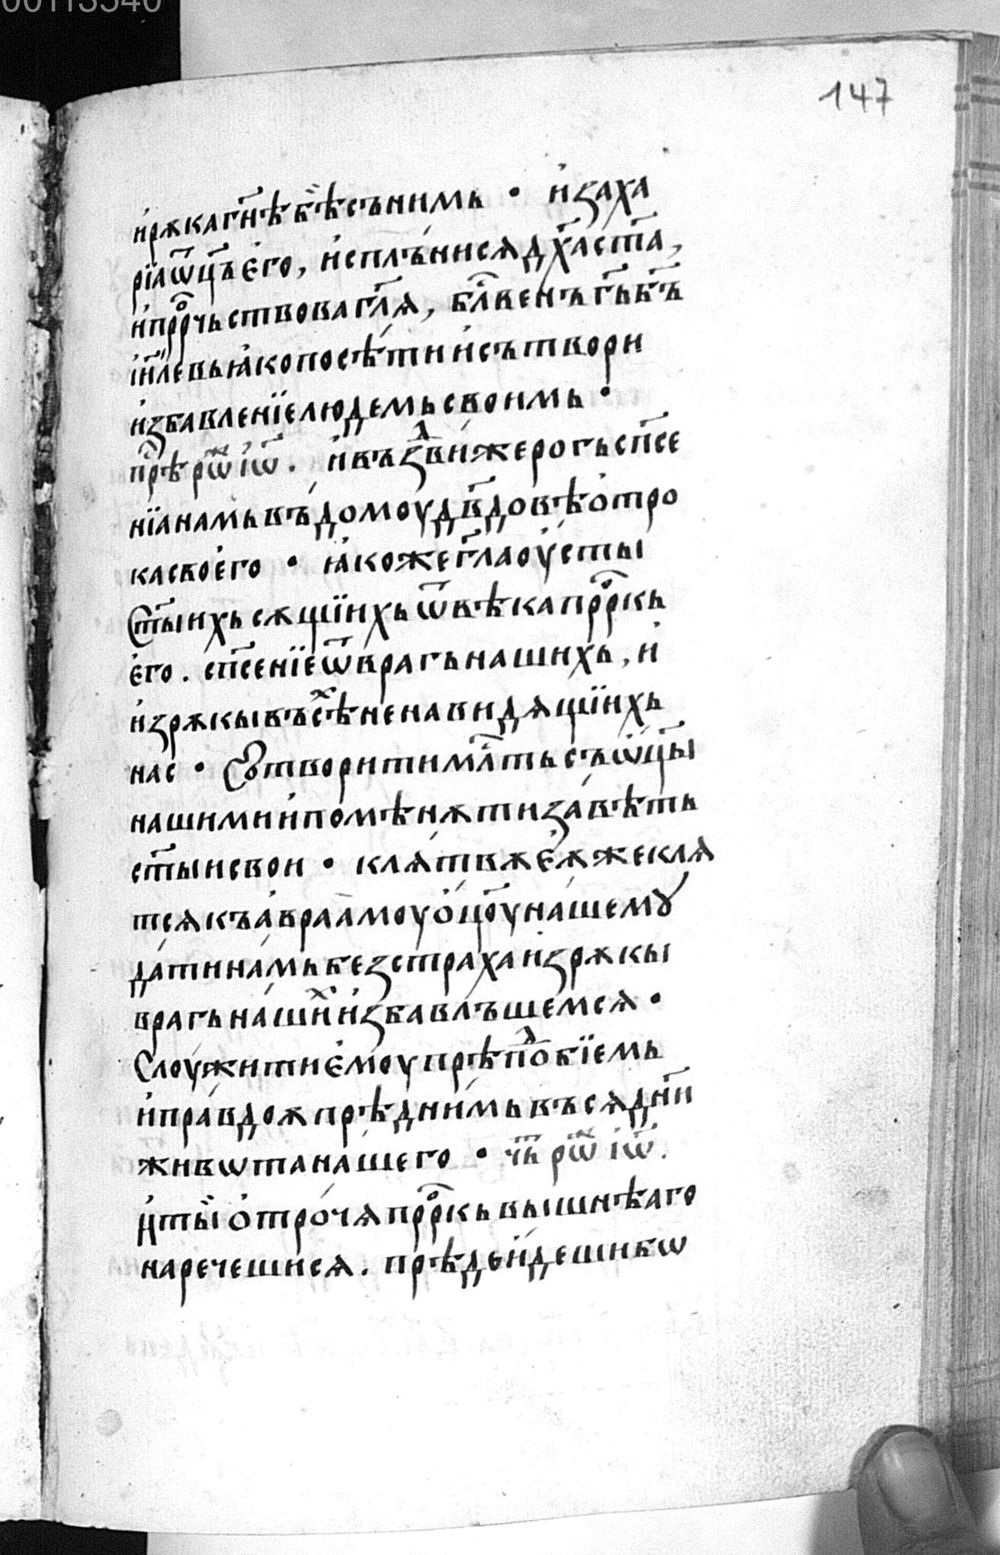 00113540
147
и҆рѫкагн҃ѣ бѣ̀ съ нимь · и҆ заха
рїа ѿц҃ъ е҆го, и҆сплъ́ни сѧ дх҃а ст҃а,
и҆ прⷪ҇рчьствова гл҃ѧ, бл҃вень гь҃ бъ҃
і҆и҃левь ꙗ҆ко посѣ́ти и҆ сътвори
и҆збавленїе людемь своимь ·
прѣ҃ рѡⷤ і҆ѡ҃ . и҆ въздви́же рогь сп҃се
нїа намь въ домоу дв҃довѣ о҆тро
ка свое҆го · ꙗ҆коже гл҃а оу҆сты
Ст҃ыихь сѫщїихь ѿ вѣка прⷪ҇ркь
е҆го . сп҃сенїе ѿ врагь нашихь, и҆
и҆з рѫкы въсѣⷯ ненавидѧщїихь
нас · Сътворити мл҃ть съ ѡ҆ц҃ы
нашими и҆ помѣнѫти завѣть
ст҃ыи свои · клѧтвѫ е҆ѫже клѧ
т сѧ къ а҆враамоу ѻ҆ц҃оу нашемꙋ
дати намь без страха и҆з рѫкы
врагь нашиⷯ и҆збавлъшем сѧ ·
Слоужити е҆моу прѣпⷣобїемь
и҆ правдоѫ прѣд нимь въсѧ дн҃и
живѡта нашего · чь҃ рѡⷤ і҆ѡ҃ .
И҆ ты̀ ѻ҆троча прⷪ҇ркь вышнѣаго
наречеши сѧ . прѣдьидеши бѡ